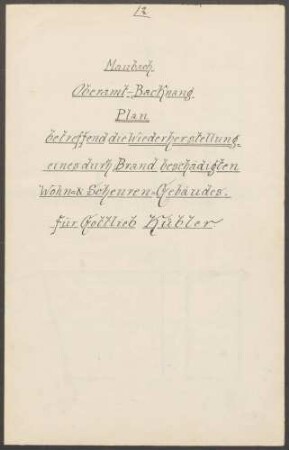 12
Maubach
Oberamt-Backnang.
Plan
betreffend die Wiederherstellung
eines durch Brand beschädigten
Wohn- & Scheuren-Gebäudes.
für Gottlieb Kübler